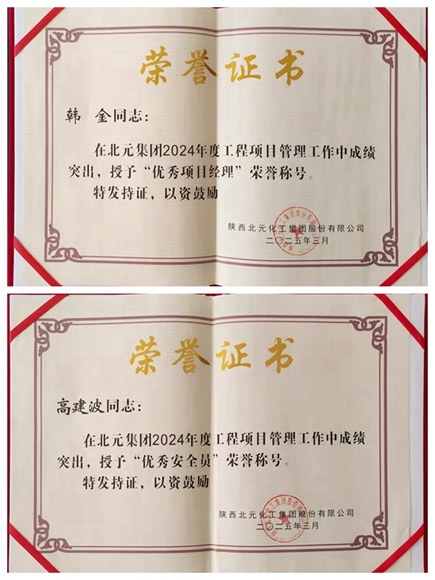 荣誉证书
韩　金同志：
在北元集团2024年度工程项目管理工作中成绩
突出，授予“优秀项目经理”荣誉称号。
特发持证，以资鼓励
陕西北元化工集团股份有限公司
二〇二五年三月
荣誉证书
高建波同志：
在北元集团2024年度工程项目管理工作中成绩
突出，授予“优秀安全员”荣誉称号。
特发持证，以资鼓励
陕西北元化工集团股份有限公司
二〇二五年三月